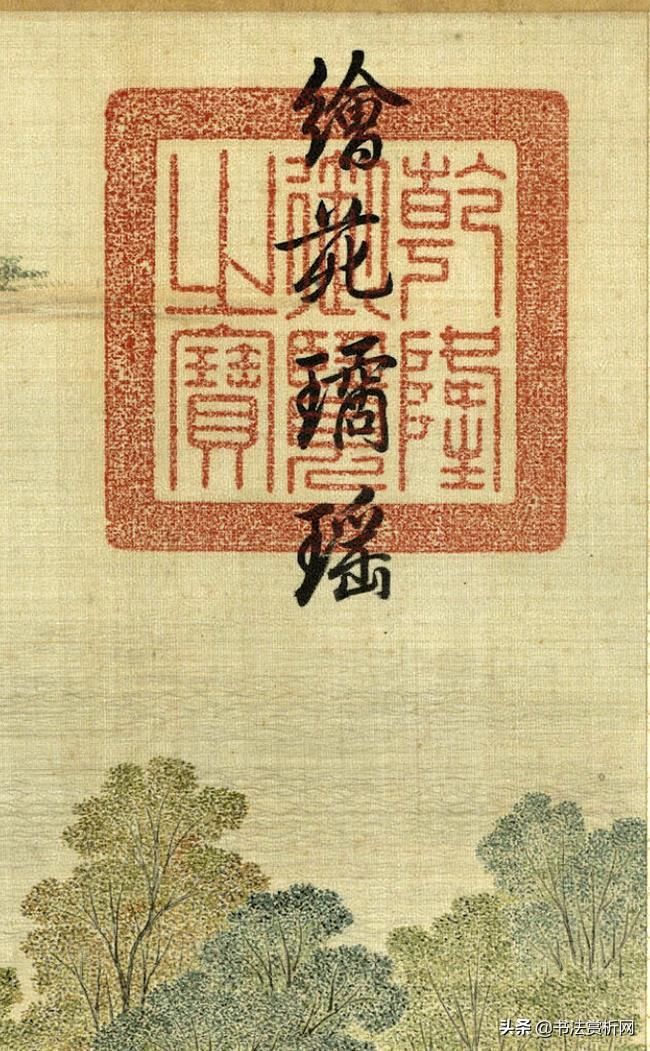 繪苑璚瑶
乾隆
御覽
之寶
头条 @书法赏析网